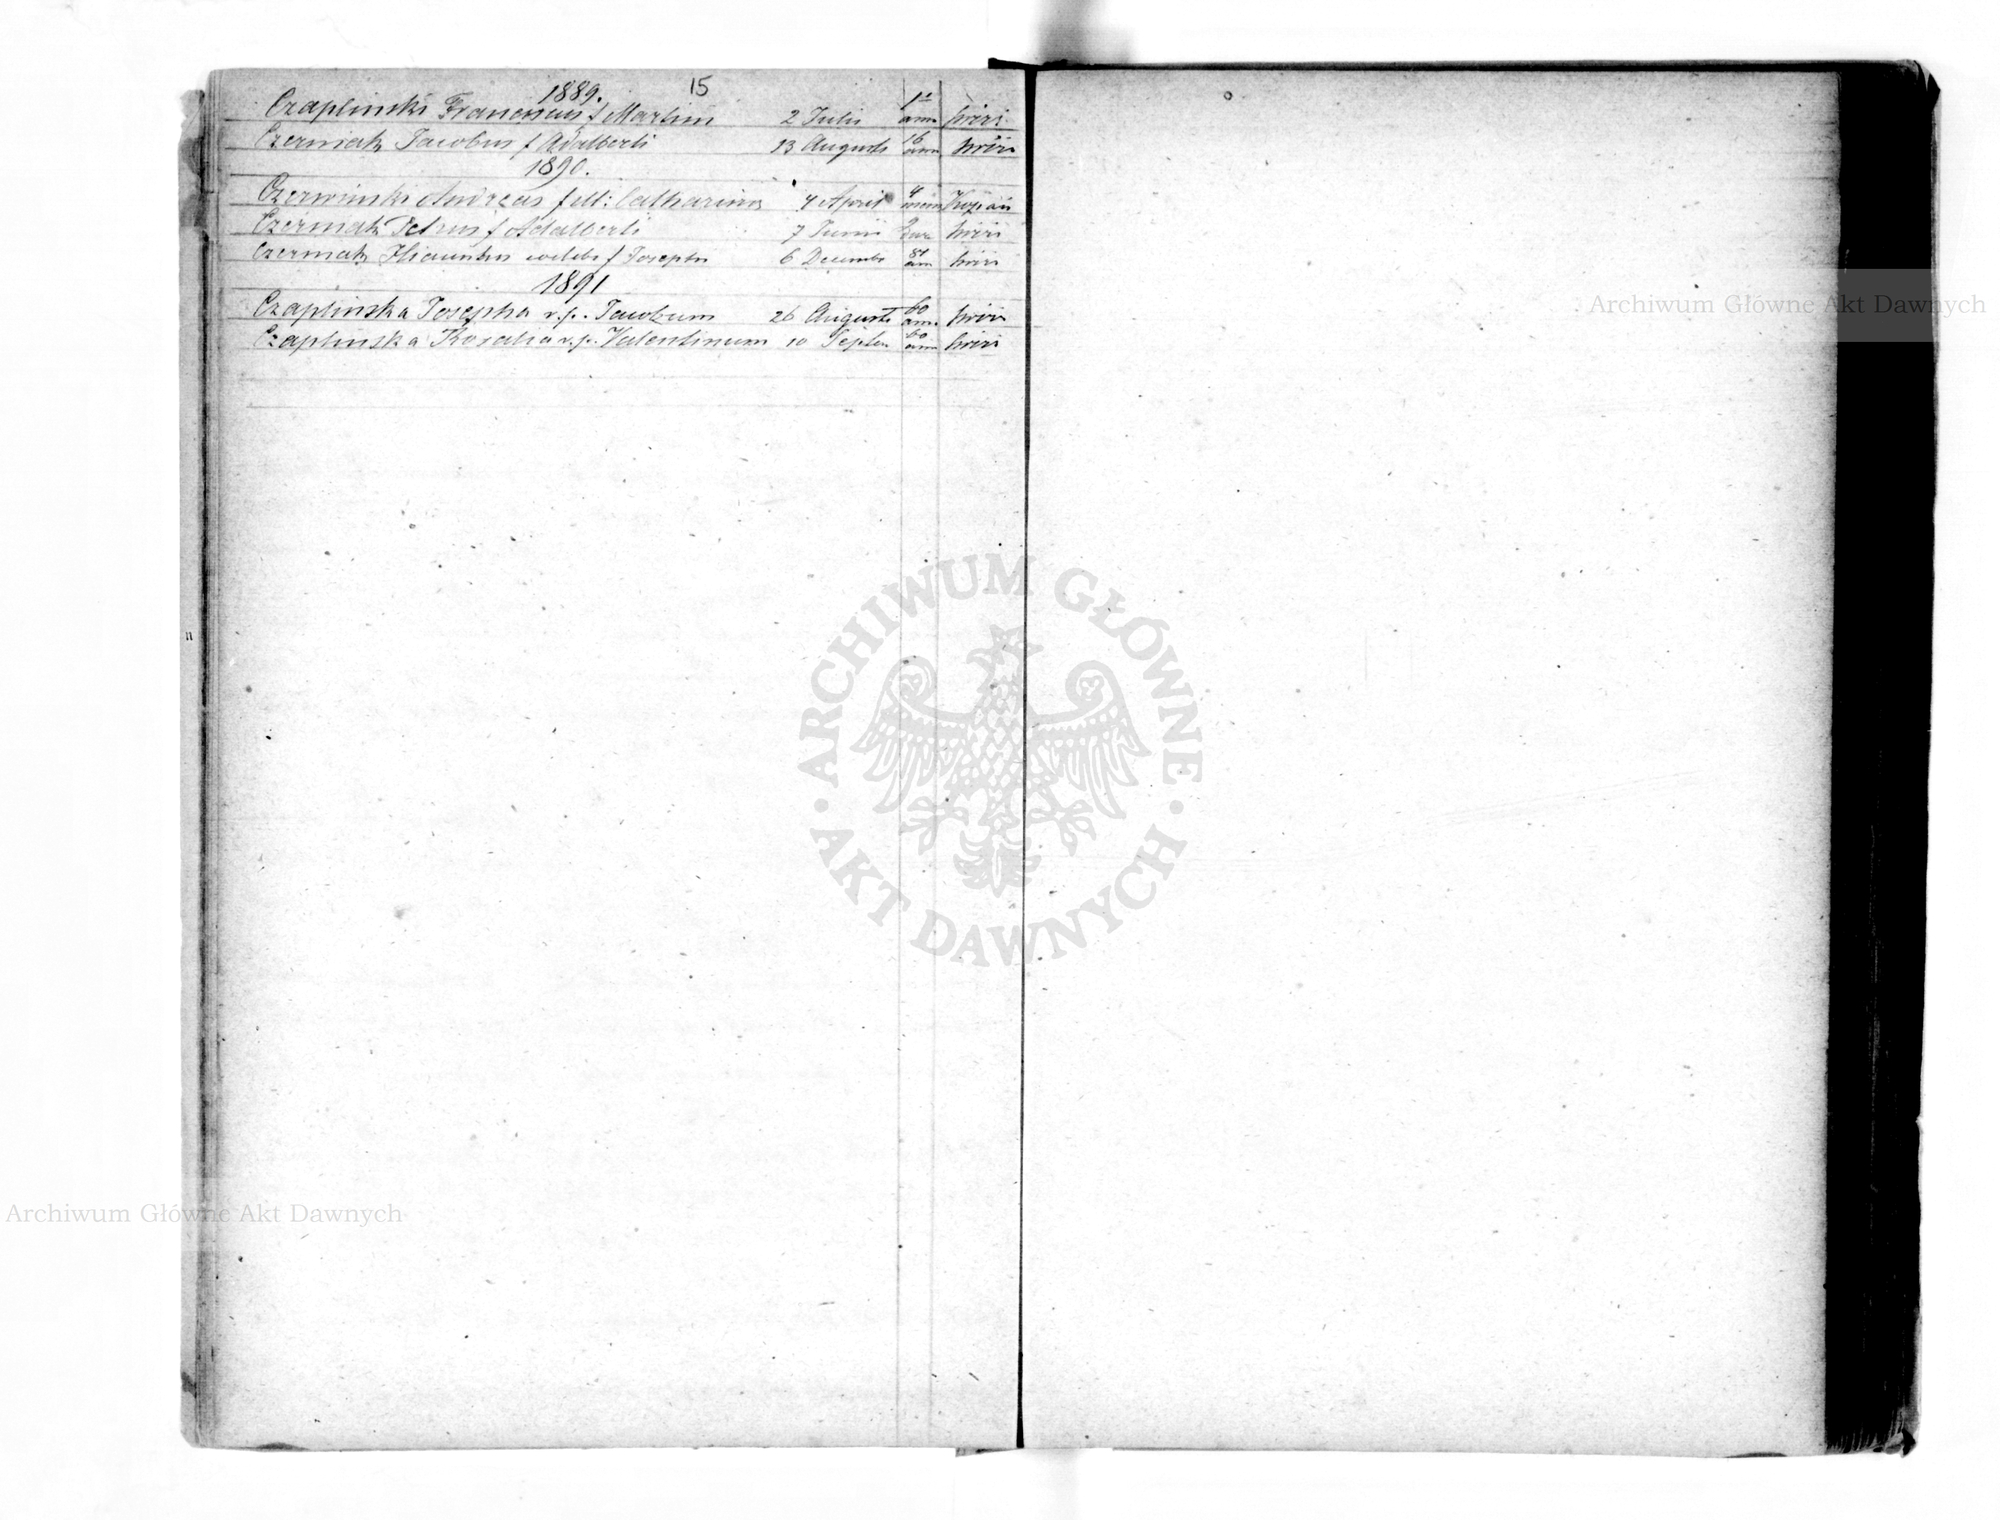 15
1889.
Czaplinski Franciscus f Martini 2 Julii 1 ann
Czerniak Jacobus f Adalberti 13 Augusti 16 ann
1890.
Czerwinski Andreas f ill: Catharina 4 April 4 mens
Czerniak Petrus f Adalberti 7 Junii
Czerniak f Josephi 6 Decembr ann
1891
Czaplinska Josepha v. p. Jacobum 26 Augusti 60 ann
Czaplinska Rosalia v. p. Valentinum 10 Septem 60 ann
Archiwum Główne Akt Dawnych
ARCHIWUM GŁÓWNE
AKT DAWNYCH
Archiwum Główne Akt Dawnych